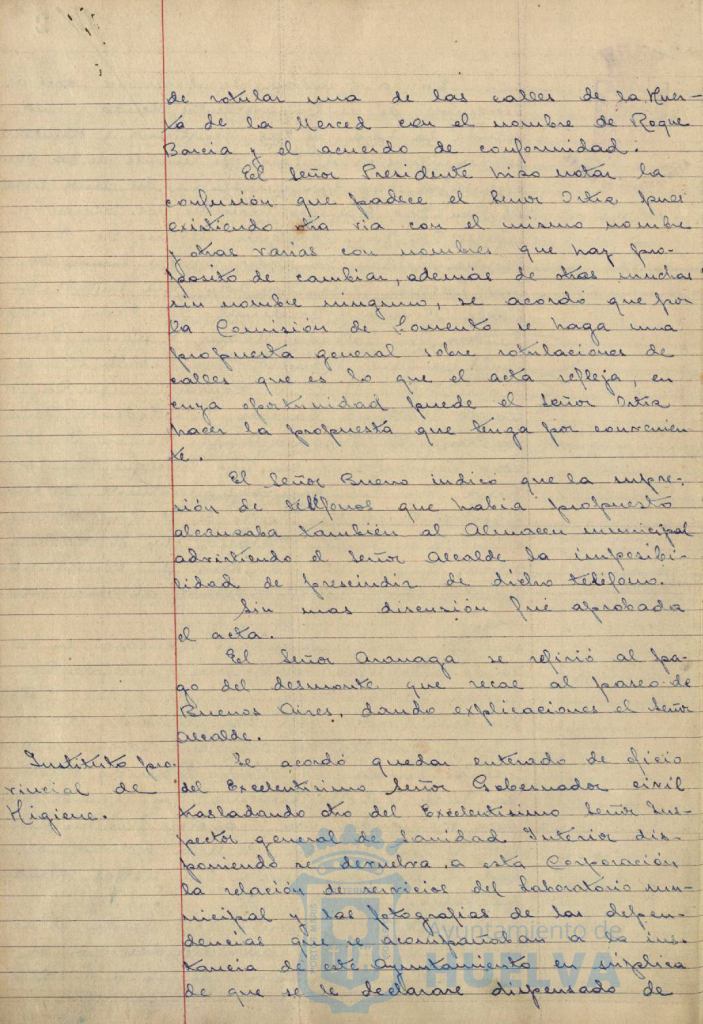 de rotular una de las calles de la Huer-
ta de la Merced con el nombre de Roque
Barcia y el acuerdo de conformidad.
El Señor Presidente hizo notar la
confusión que padece el Señor Ortiz pues
existiendo otra via con el mismo nombre
y otras varias con nombres que hay pro-
posito de cambiar, además de otras muchas
sin nombre ninguno, se acordó que por
la Comisión de Fomento se haga una
propuesta general sobre rotulaciones de
calles que es lo que el acta refleja, en
cuya oportunidad puede el Señor Ortiz
hacer la propuesta que tenga por convenien
te.
El Señor Bueno indicó que la supre-
sión de teléfonos que habia propuesto
alcanzaba también al Almacen municipal
advirtiendo el Señor Alcalde la imposibi-
lidad de prescindir de dicho teléfono.
Sin mas discusión fué aprobada
el acta.
El Señor Aranaga se refirió al pa-
go del desmonte que recae al paseo de
Buenos Aires, dando explicaciones el Señor
Alcalde.
Instituto pro-
vincial de
Higiene.
Se acordó quedar enterado de oficio
del Excelentisimo Señor Gobernador civil
trasladando otro del Excelentisimo Señor Ins-
pector general de Sanidad Interior dis-
poniendo se devuelva a esta Corporación
la relación de servicios del Laboratorio mu-
nicipal y las fotografias de las depen-
dencias que se acompañaban a la ins-
tancia de este Ayuntamiento en suplica
de que se le declarase dispensado de
Ayuntamiento de
HUELVA